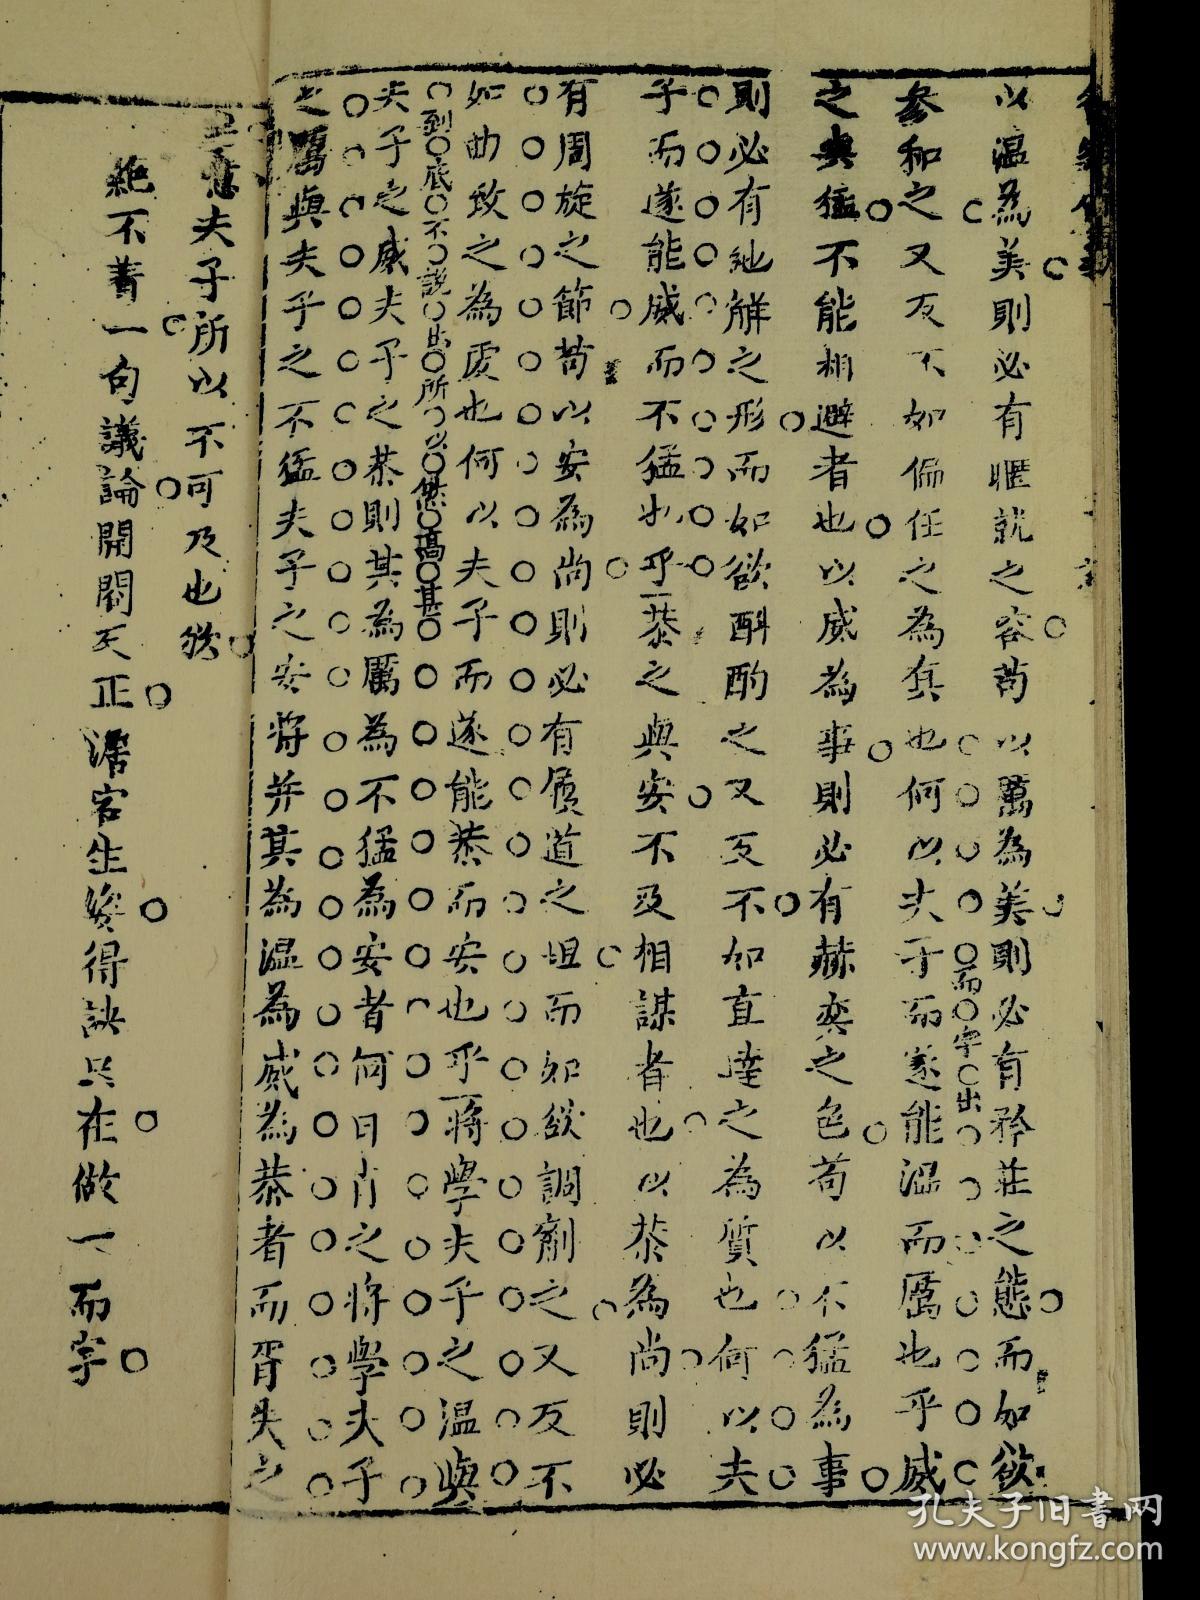 以溫為美則必有暱就之容苟以厲為美則必有矜莊之態而如欲
參和之又反不如偏任之為真也何以夫子而遂能溫而厲也乎威
而字出
之與猛不能相避者也以威為事則必有赫奕之色苟以不猛為事
則必有弛解之形而如欲斟酌之又反不如直達之為質也何以夫
子而遂能威而不猛也乎恭之與安不及相謀者也以恭為尚則必
有周旋之節苟以安為尚則必有履道之坦而如欲調劑之又反不
如曲致之為度也何以夫子而遂能恭而安也乎將學夫子之溫與
到底不說出所以然高甚
夫子之威夫子之恭則其為厲為不猛為安者何日肖之將學夫子
之厲與夫子之不猛夫子之安將并其為溫為威為恭者而胥失之
夫子所以不可及也欤
絕不著一句議論開闔反正濡客生姿得訣只在做一而字
孔夫子旧书网
www.kongfz.com